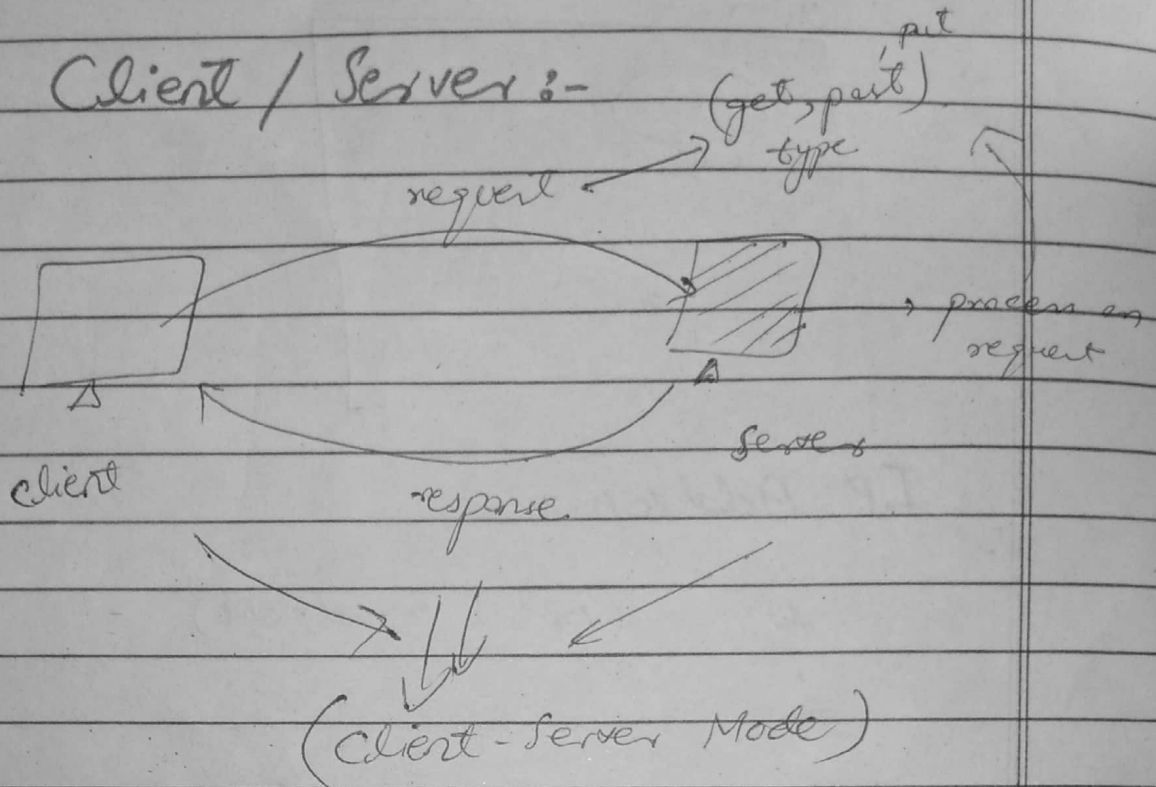 put
Client / Server :-
(get, post)
type
request
process on
request
server
client
response
(Client-Server Mode)